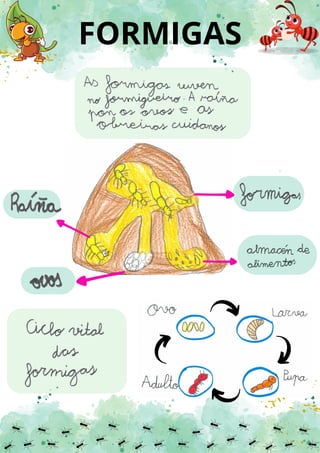 FORMIGAS
As formigas viven
no formigueiro. A raíña
pon os ovos e as
obreiras cuídanos
Raíña
formigas
almacén de
alimentos
ovos
Ciclo vital
das
formigas
Ovo
Larva
Pupa
Adulto